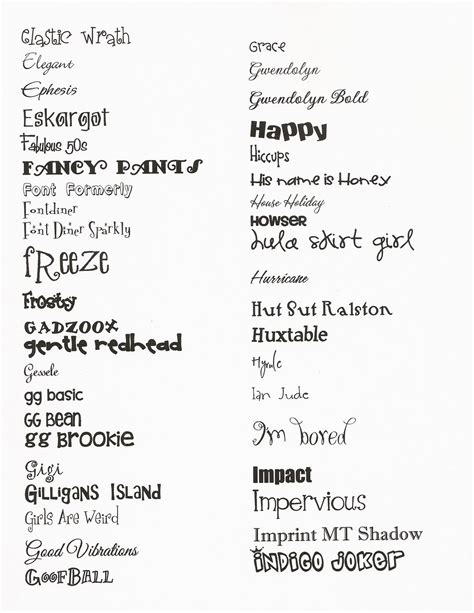 Elastic Wrath
Elegant
Ephesis
Eskargot
Fabulous 50s
FANCY PANTS
Font Formerly
Fontdiner
Font Diner Sparkly
fREEZE
Frosty
GADZOOX
gentle redhead
Gessele
gg basic
GG BEAN
GG BROOKIE
Gigi
GILLIGANS ISLAND
Girls Are Weird
Good Vibrations
GOOFBALL
Grace
Gwendolyn
Gwendolyn Bold
Happy
Hiccups
His name is Honey
House Holiday
HOWSER
hula skirt girl
Hurricane
Hut Sut Ralston
Huxtable
Hyrule
Ian Jude
I'm bored
Impact
Impervious
Imprint MT Shadow
iNDiGO JOKER